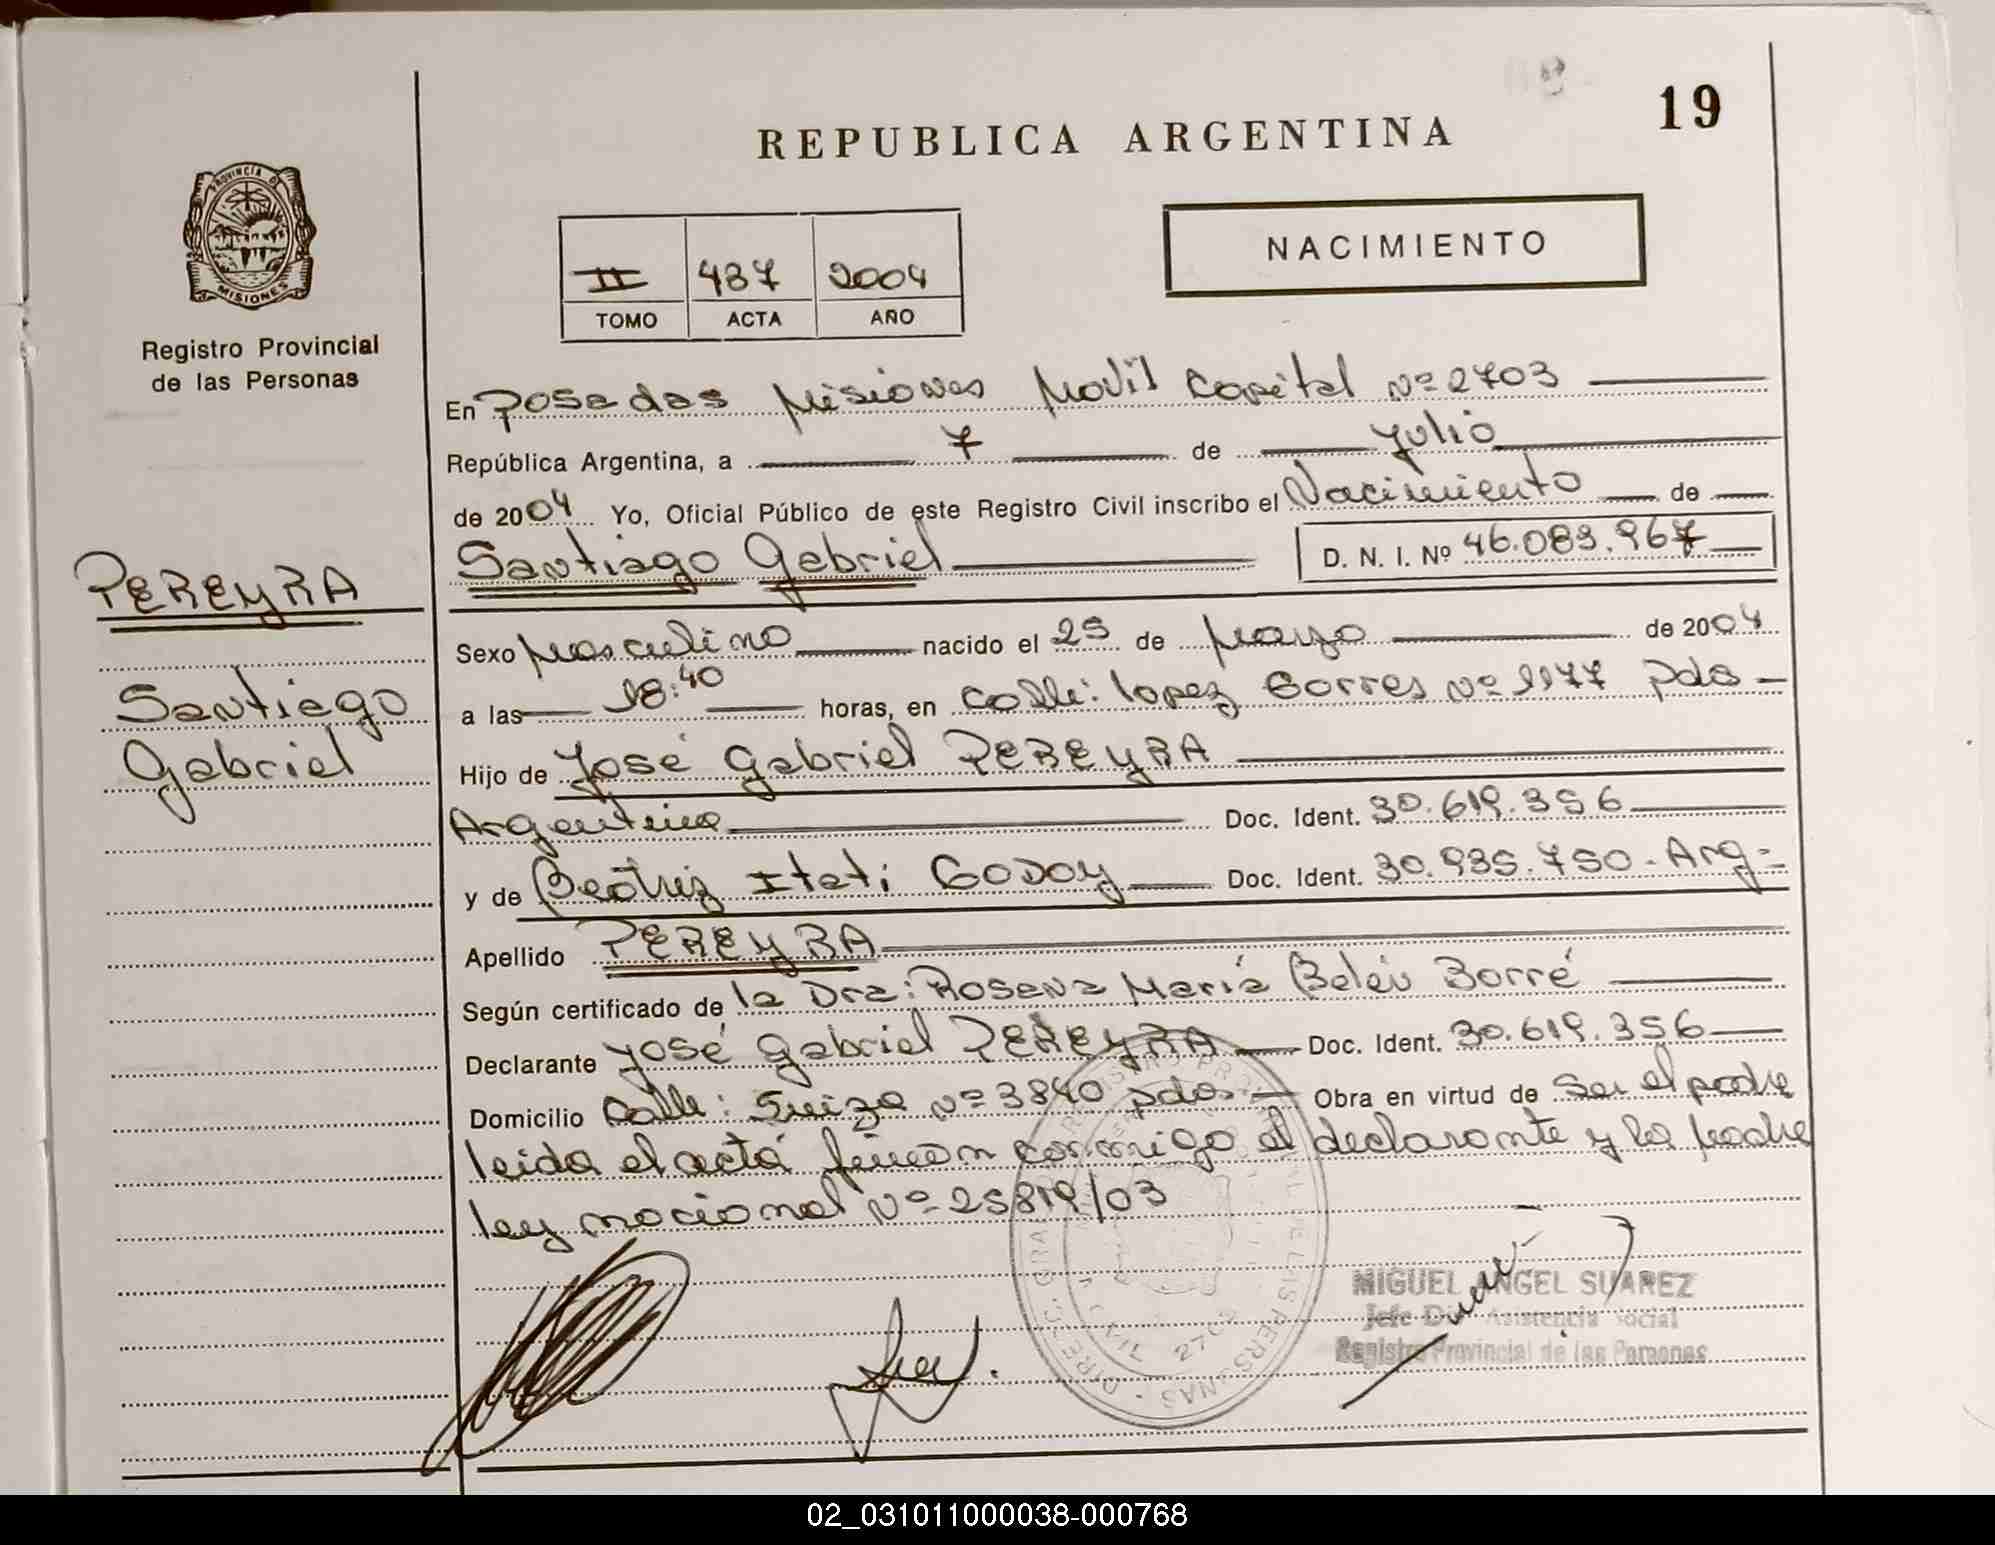 19
REPUBLICA ARGENTINA
PROVINCIA DE
MISIONES
Registro Provincial
de las Personas
NACIMIENTO
II 437 2004
TOMO ACTA AÑO
En Posadas Misiones Movil Capital Nº 2703
República Argentina, a 7 de Julio
de 2004 Yo, Oficial Público de este Registro Civil inscribo el Nacimiento de
Santiago Gabriel D. N. I. Nº 46.089.967
PEREYRA
Santiago
Gabriel
Sexo Masculino nacido el 25 de Mayo de 2004
a las 18:40 horas, en Calle: Lopez Torres Nº 1177 Pdas
Hijo de José Gabriel PEREYRA
Argentino Doc. Ident. 30.619.356
y de Beatriz Itatí GODOY Doc. Ident. 30.935.750. Arg=
Apellido PEREYRA
Según certificado de la Dra: Rosana María Belén Borré
Declarante José Gabriel PEREYRA Doc. Ident. 30.619.356
Domicilio Calle: Suiza Nº 3840 pdas. Obra en virtud de Ser el padre
leida el acta firman conmigo el declarante y la madre
ley nacional Nº 25819/03
MIGUEL ANGEL SUAREZ
Jefe Asistencia Social
Registro Provincial de las Personas
02_031011000038-000768